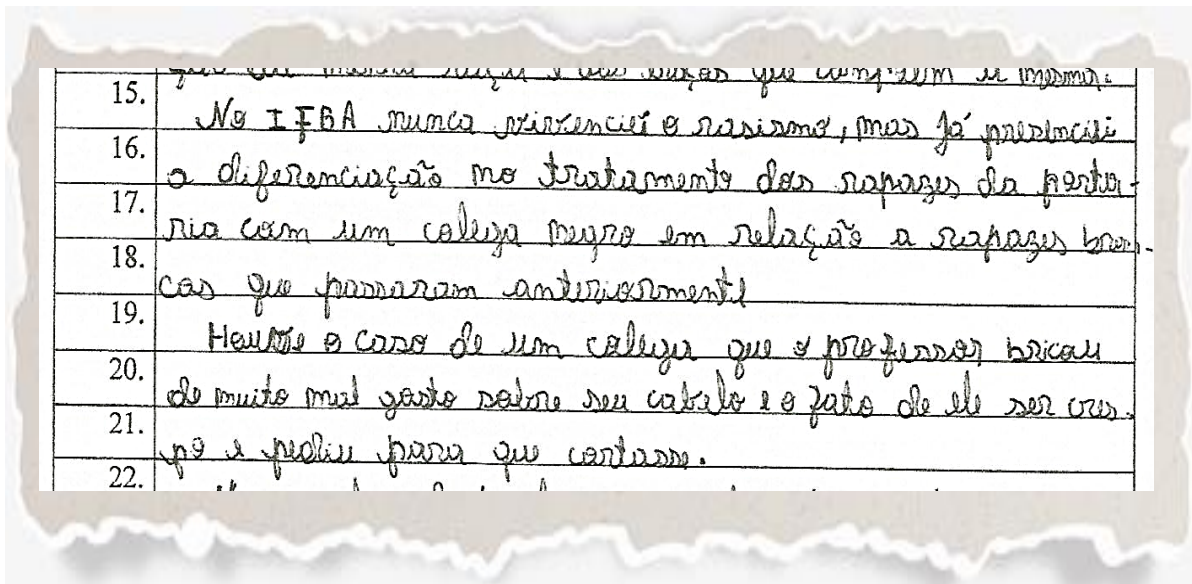 que compõem a mesma.
15.
No IFBA nunca vivenciei o rasismo, mas já presenciei
16.
a diferenciação no tratamento dos rapazes da porta-
17.
ria com um colega negro em relação a rapazes bran-
18.
cos que passaram anteriormente
19.
Houve o caso de um colega que o professor bricou
20.
de muito mal gosto sobre seu cabelo e o fato de ele ser cres-
21.
po e pediu para que cortasse.
22.